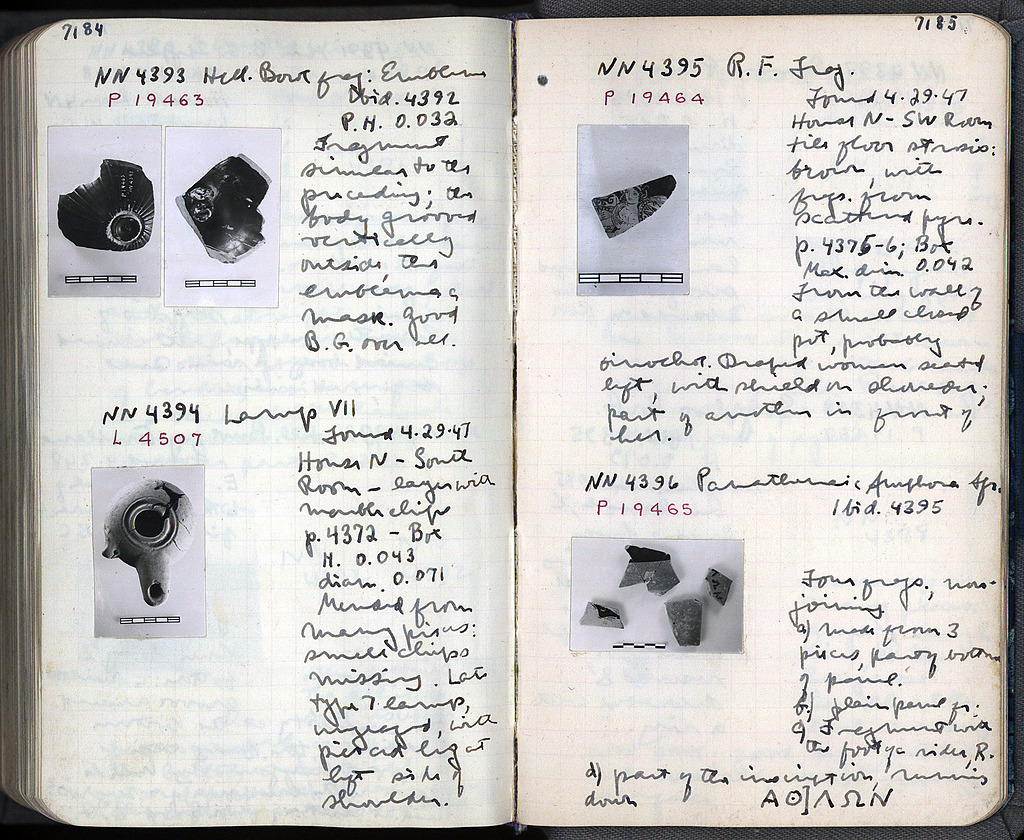 7184
NN 4393 Hell. Bowl frag: Emblema
P 19463
Ibid. 4392
P.H. 0.032
Fragment
similar to the
preceding; the
body grooved
vertically
outside, the
emblema a
mask. Good
B.G. over all.
NN 4394 Lamp VII
L 4507
Found 4.29.47
House N – South
Room – layer with
marble chips
p. 4372 – Box
H. 0.043
diam. 0.071
Mended from
many pieces:
small chips
missing. Late
type 7 lamp,
unglazed, with
pierced lug at
left side of
shoulder.
7185
NN 4395 R. F. Frag.
P 19464
Found 4.29.47
House N – SW Room
tile floor strosis:
brown, with
frgs. from
scattered pyre.
p. 4375-6; Box
Max. dim. 0.042
From the wall of
a small closed
pot, probably
oinochoe. Draped woman seated
left, with shield on shoulder;
part of another in front of
her.
NN 4396 Panathenaic Amphora frs.
P 19465
Ibid. 4395
Four frags., non-
joining
a) made from 3
pieces, part of bottom
of panel.
b) plain panel fr.
c) Fragment with
the foot of a rider, R.
d) part of the inscription, running
down ΑΘ]ΛΩΝ